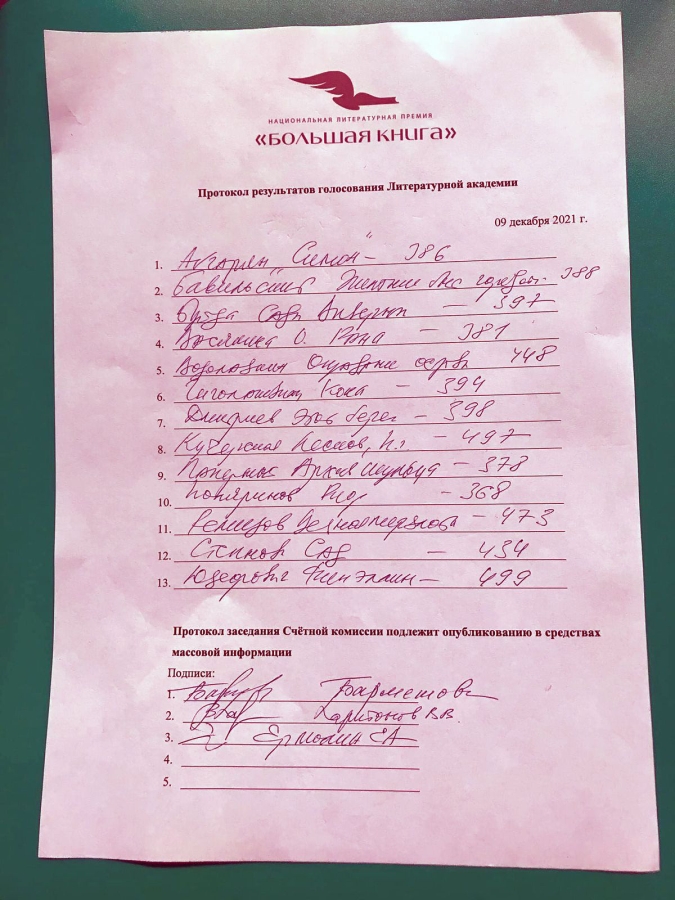 НАЦИОНАЛЬНАЯ ЛИТЕРАТУРНАЯ ПРЕМИЯ
«БОЛЬШАЯ КНИГА»
Протокол результатов голосования Литературной академии
09 декабря 2021 г.
1. Абгарян Симон - 386
2. Бавильский Желание быть городом - 388
3. Букша - 397
4. Васякина О. Рана - 381
5. Водолазкин Оправдание острова 448
6. Гиголашвили Кока - 394
7. Дмитриев Этот берег - 398
8. Кучерская Лесков, - 497
9. Паперный Архив Шульца - 378
10. Поляринов Риф - 368
11. Ремизов Вечная мерзлота - 473
12. Степнова Сад - 434
13. Юзефович Филэллин - 499
Протокол заседания Счётной комиссии подлежит опубликованию в средствах
массовой информации
Подписи:
1. Барметова
2. Харитонов В.В.
3. Ермолин ЕА
4.
5.